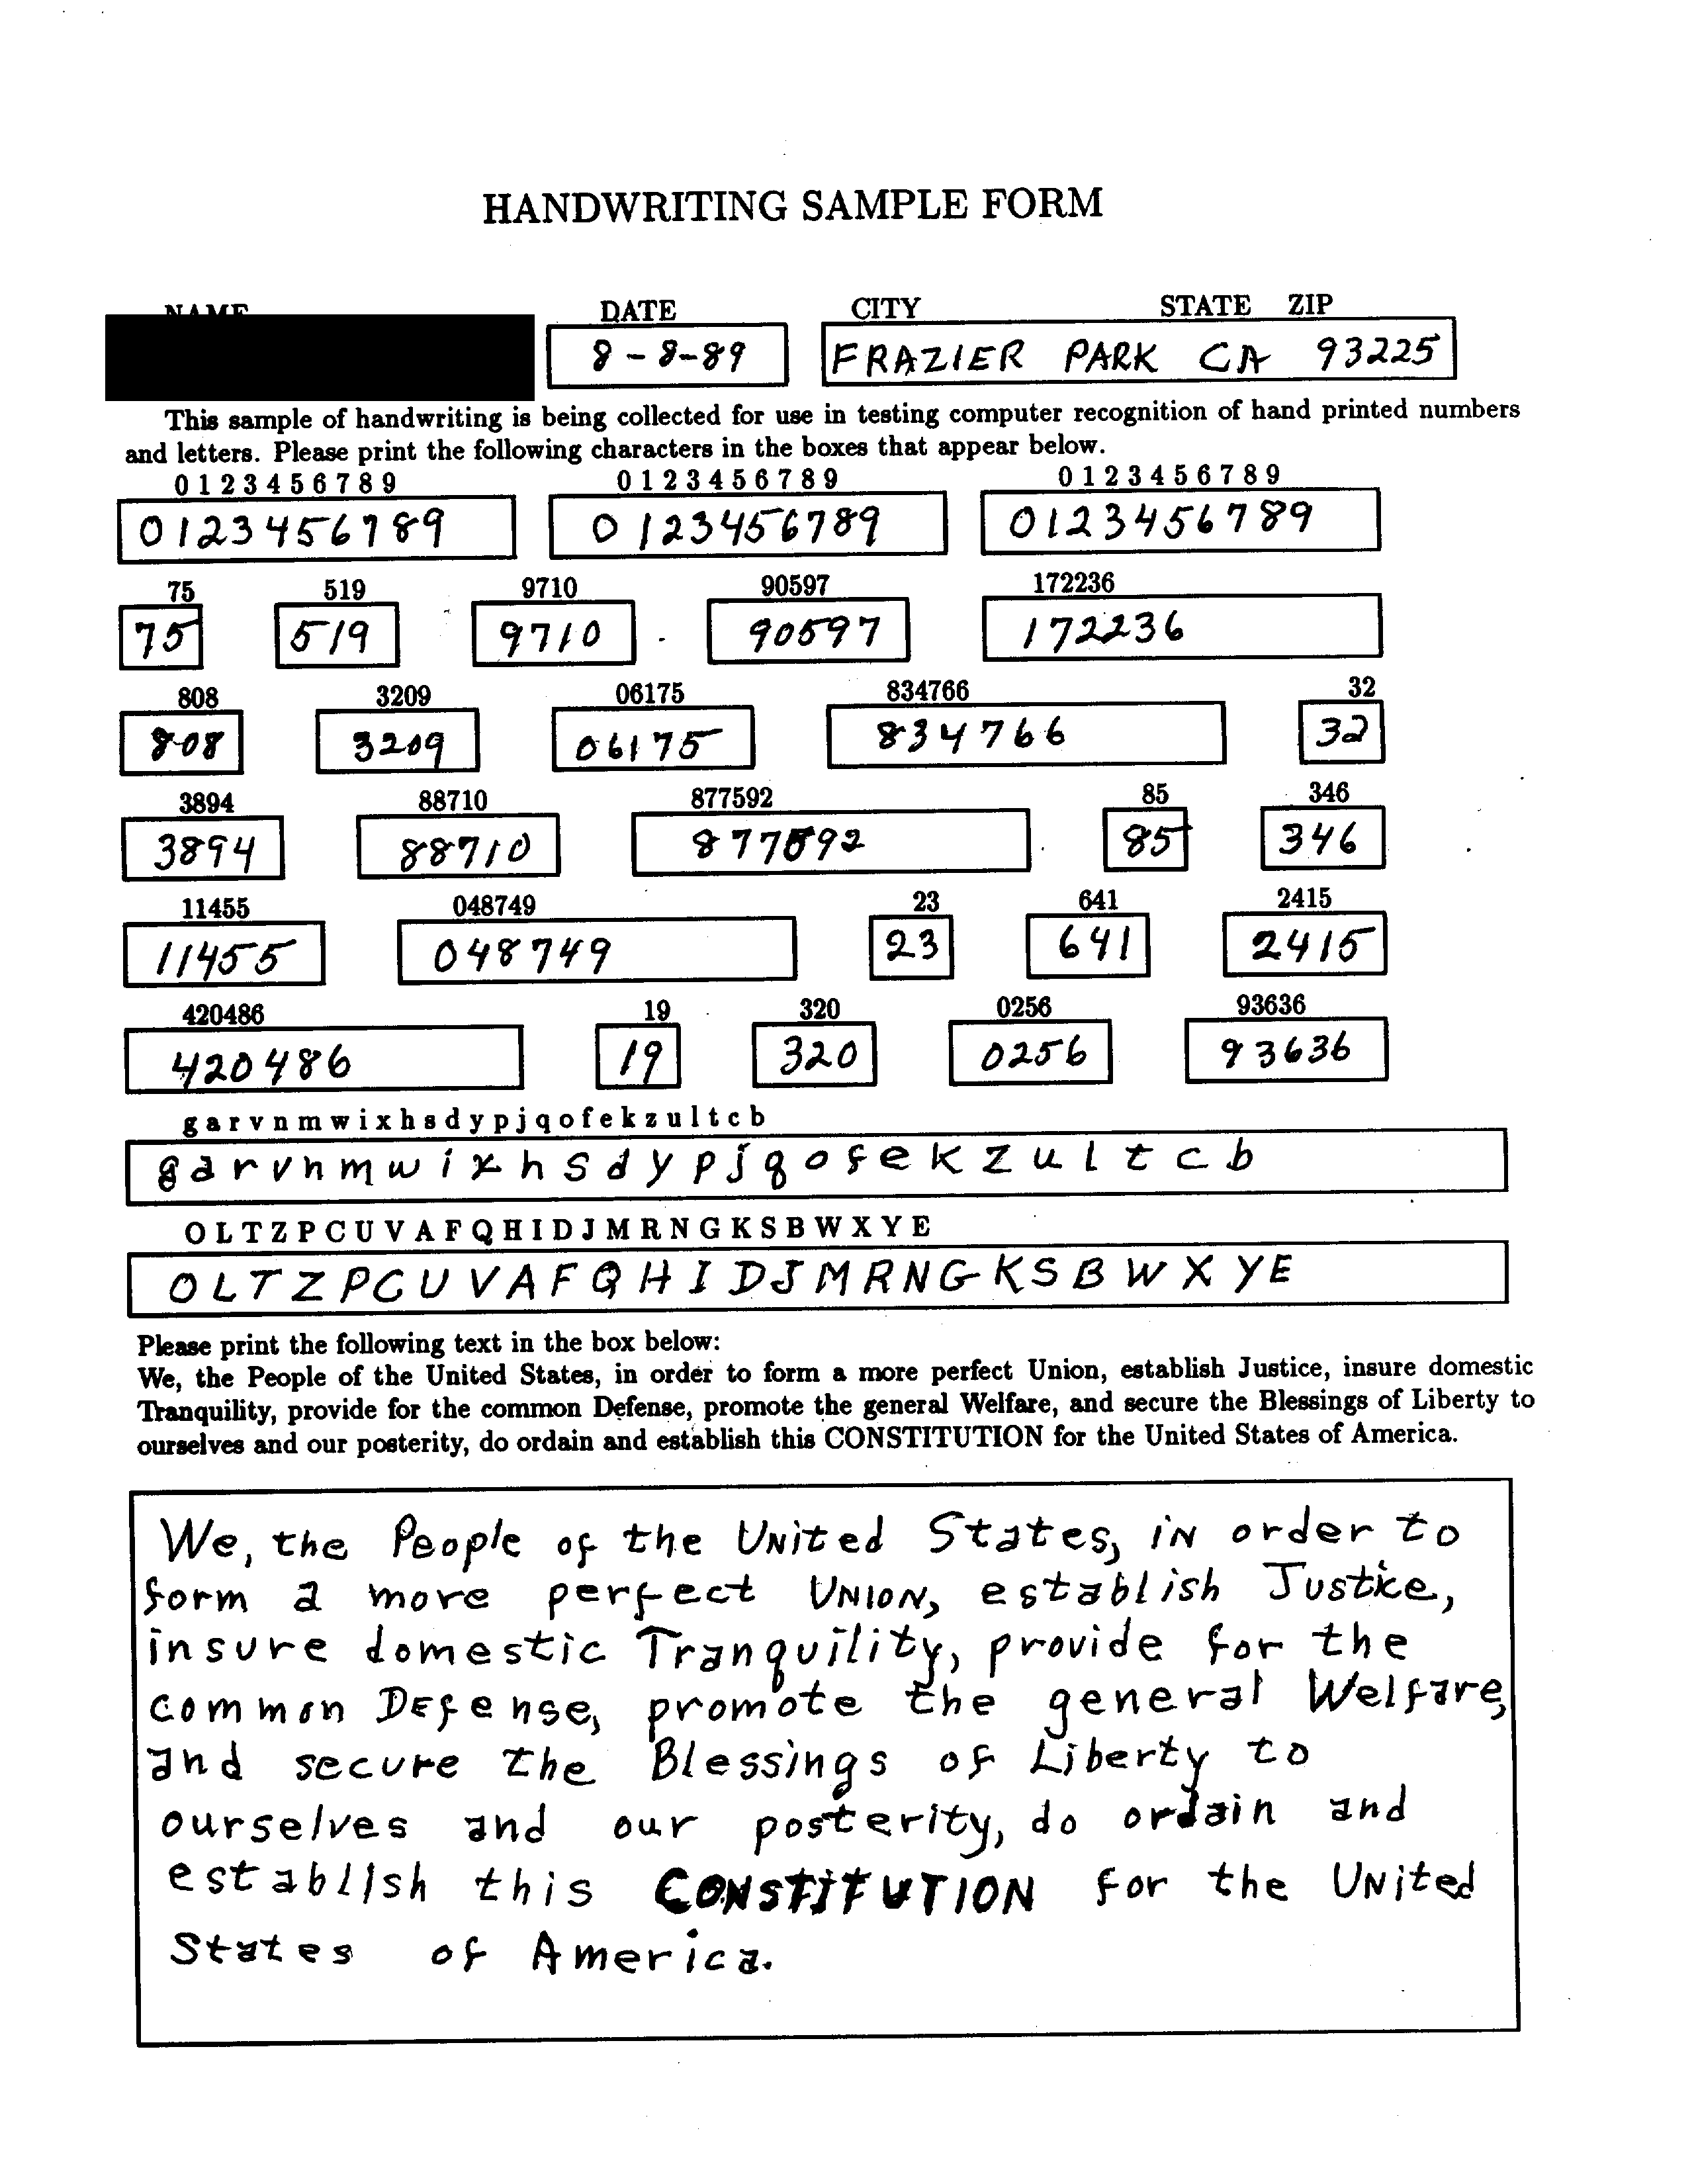 HANDWRITING SAMPLE FORM
NAME DATE CITY STATE ZIP
8-8-89 FRAZIER PARK CA 93225
This sample of handwriting is being collected for use in testing computer recognition of hand printed numbers
and letters. Please print the following characters in the boxes that appear below.
0 1 2 3 4 5 6 7 8 9 0 1 2 3 4 5 6 7 8 9 0 1 2 3 4 5 6 7 8 9
0123456789 0123456789 0123456789
75 519 9710 90597 172236
75 519 9710 90597 172236
808 3209 06175 834766 32
808 3209 06175 834766 32
3894 88710 877592 85 346
3894 88710 877592 85 346
11455 048749 23 641 2415
11455 048749 23 641 2415
420486 19 320 0256 93636
420486 19 320 0256 93636
g a r v n m w i x h s d y p j q o f e k z u l t c b
g a r v n m w i x h s d y p j q o f e k z u l t c b
O L T Z P C U V A F Q H I D J M R N G K S B W X Y E
O L T Z P C U V A F Q H I D J M R N G K S B W X Y E
Please print the following text in the box below:
We, the People of the United States, in order to form a more perfect Union, establish Justice, insure domestic
Tranquility, provide for the common Defense, promote the general Welfare, and secure the Blessings of Liberty to
ourselves and our posterity, do ordain and establish this CONSTITUTION for the United States of America.
We, the People of the UNited States, iN order to
form a more perfect UNION, establish Justice,
insure domestic Tranquility, provide for the
common DEfense, promote the general Welfare,
and secure the Blessings of Liberty to
ourselves and our posterity, do ordain and
establish this CONSTITUTION for the UNited
States of America.